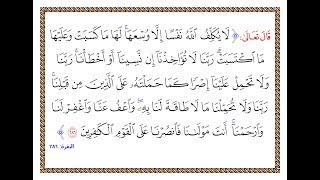 قَالَ تَعَالَىٰ: ﴿ لَا يُكَلِّفُ ٱللَّهُ نَفْسًا إِلَّا وُسْعَهَا ۚ لَهَا مَا كَسَبَتْ وَعَلَيْهَا
مَا ٱكْتَسَبَتْ ۗ رَبَّنَا لَا تُؤَاخِذْنَآ إِن نَّسِينَآ أَوْ أَخْطَأْنَا ۚ رَبَّنَا
وَلَا تَحْمِلْ عَلَيْنَآ إِصْرًا كَمَا حَمَلْتَهُۥ عَلَى ٱلَّذِينَ مِن قَبْلِنَا ۚ
رَبَّنَا وَلَا تُحَمِّلْنَا مَا لَا طَاقَةَ لَنَا بِهِۦ ۖ وَٱعْفُ عَنَّا وَٱغْفِرْ لَنَا
وَٱرْحَمْنَآ ۚ أَنتَ مَوْلَىٰنَا فَٱنصُرْنَا عَلَى ٱلْقَوْمِ ٱلْكَٰفِرِينَ ٢٨٦ ﴾
البقرة: ٢٨٦